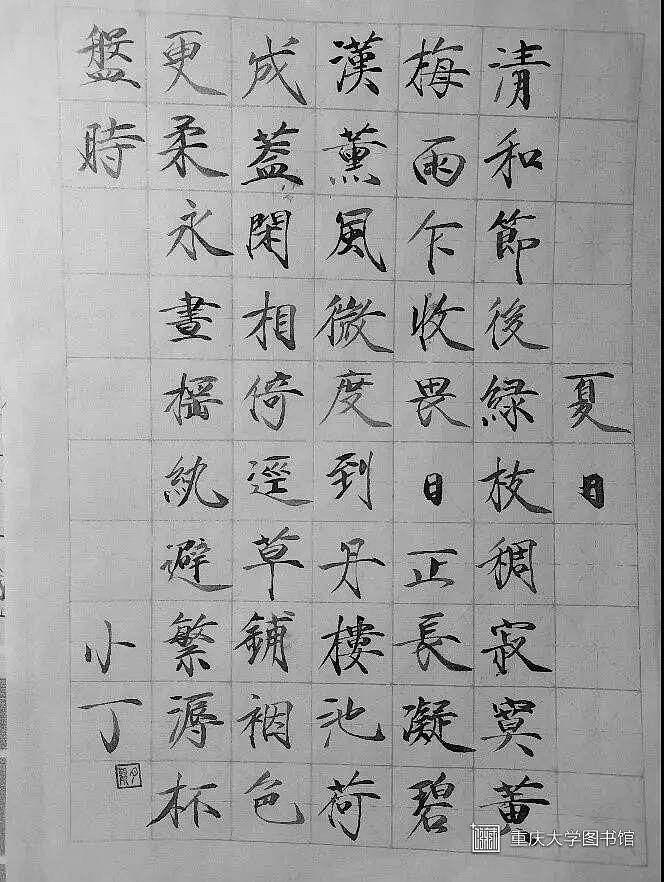 夏日
清和節後緑枝稠寂寞黄
梅雨乍收畏日正長凝碧
漢薰風微度到丹樓池荷
成蓋閑相倚逕草鋪裀色
更柔永晝摇紈避繁溽杯
盤時
小丁
重庆大学图书馆